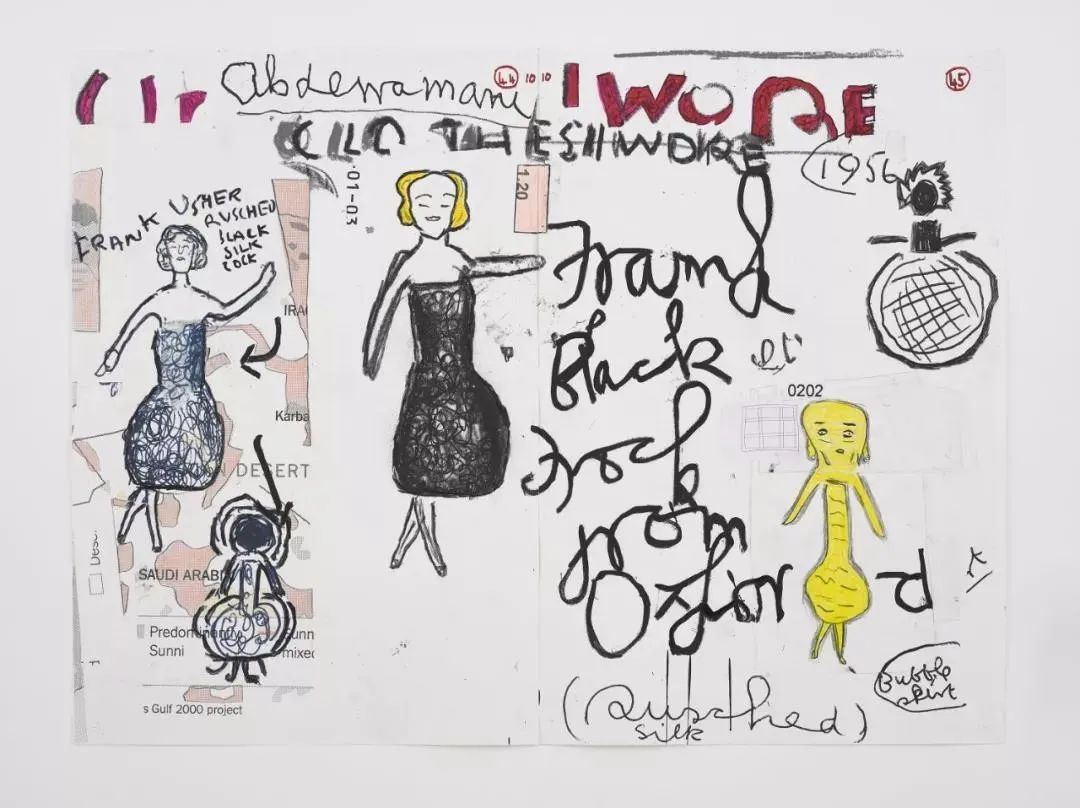 Abderramane
44 10 10
I WORE
45
CLO THES I I WORE
1956
01-03
1.20
FRANK USHER
RUSCHED
BLACK
SILK
COCK
IRA
Karba
DESERT
SAUDI ARABI
Predominantly
Sunni
Sunn
mixed
s Gulf 2000 project
Desc
Frank
Black
Frock
from
Oxford
(Rusched)
silk
0202
Bubble
skirt